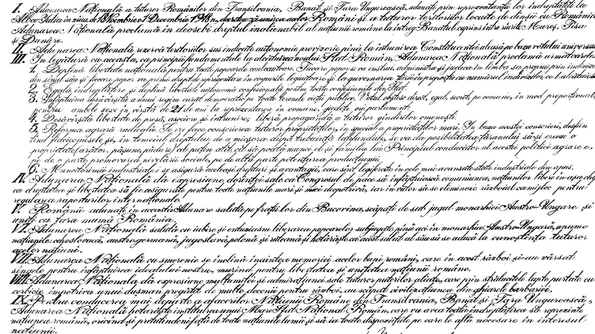 I. Adunarea Națională a tuturor Românilor din Transilvania, Banat și Țara Ungurească, adunați prin reprezentanții lor îndreptățiți la
Alba-Iulia în ziua de 1 Decembrie 1918, decretează unirea acelor Români și a tuturor teritoriilor locuite de dînșii cu România.
Adunarea Națională proclamă îndeosebi dreptul inalienabil al națiunii române la întreg Banatul cuprins între rîurile Mureș, Tisa
și Dunăre.
II. Adunarea Națională rezervă teritoriilor sus indicate autonomie provizorie pînă la întrunirea Constituantei aleasă pe baza votului universal.
III. În legătură cu aceasta, ca principii fundamentale la alcătuirea noului Stat Român, Adunarea Națională proclamă următoarele:
1. Deplină libertate națională pentru toate popoarele conlocuitoare. Fiecare popor
2. Egală îndreptățire și deplină libertate autonomă confesională pentru toate confesiunile din Stat.
3. Înfăptuirea desăvîrșită a unui regim curat democratic pe toate terenele vieții publice. Votul obștesc, direct, egal, secret, pe comune, în mod proporțional,
pentru ambele sexe, în vîrstă de 21 de ani la reprezentarea în comune, județe ori parlament.
4. Desăvîrșită libertate de presă, asociere și întrunire; libera propagandă a tuturor gîndurilor omenești.
5. Reforma agrară radicală. Se va face conscrierea tuturor proprietăților, în special a proprietăților mari. În baza acestei conscrieri, desființînd
pe de o parte promovarea nivelării sociale, pe de altă parte potențarea producțiunii.
6. Muncitorimei industriale i se asigură aceleași drepturi și avantagii, care sînt legiferate în cele mai avansate state industriale din apus.
IV. Adunarea Națională dă expresiune dorinței sale, ca Congresul de pace să înfăptuiască comuniunea națiunilor libere în așa chip,
ca dreptatea și libertatea să fie asigurate pentru toate națiunile mari și mici deopotrivă, iar în viitor să se elimineze războiul ca mijloc pentru
regularea raporturilor internaționale.
V. Românii adunați în această Adunare salută pe frații lor din Bucovina, scăpați din jugul monarhiei Austro-Ungare și
uniți cu țara mamă România.
VI. Adunarea Națională salută cu iubire și entuziasm liberarea popoarelor subjugate pînă aci în monarhia Austro-Ungară, anume
națiunile: cehoslovacă, austrogermană, jugoslavă, polonă și ruteană și hotărăște ca acest salut al său să se aducă la cunoștința tuturor
acelor națiuni.
VII. Adunarea Națională cu smerenie se închină înaintea memoriei acelor bravi români, care în acest război și-au vărsat
sîngele pentru înfăptuirea idealului nostru, murind pentru libertatea și unitatea națiunii române.
VIII. Adunarea Națională dă expresiune mulțumirei și admirațiunei sale tuturor puterilor aliate, care prin strălucitele lupte purtate cu
cerbicie împotriva unui dușman pregătit de multe decenii pentru război, au scăpat civilizațiunea din ghiarele barbariei.
IX. Pentru conducerea mai departe a afacerilor Națiunii Române din Transilvania, Banat și Țara Ungurească,
Adunarea Națională hotărăște instituirea unui Mare Sfat Național Român, care va avea toată îndreptățirea să reprezinte
națiunea română, oricînd și pretutindeni față de toate națiunile lumii și să ia toate dispozițiunile pe care le va afla necesare în interesul
națiunii.